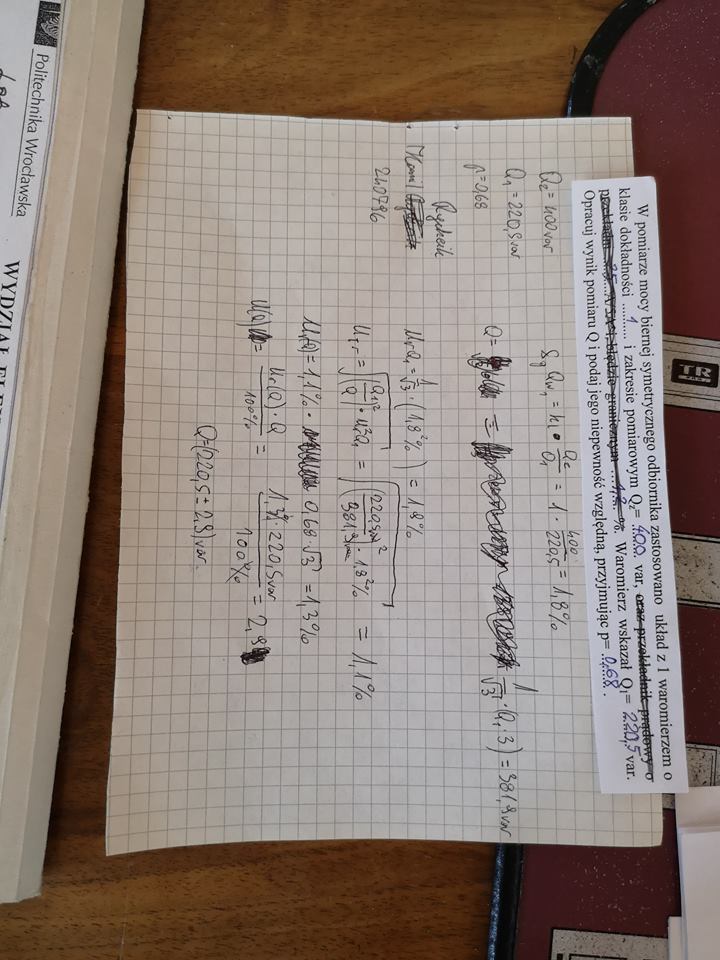 TR
W pomiarze mocy biernej symetrycznego odbiornika zastosowano układ z 1 waromierzem o
klasie dokładności ...1... i zakresie pomiarowym Qz= 400 var, oraz przekładnik prądowy o
przekładni ...25...A/5A i błędzie granicznym ...1,2...%. Waromierz wskazał Q1= 220,5 var.
Opracuj wynik pomiaru Q i podaj jego niepewność względną, przyjmując p= 0,68.
Qz = 400 var
δg Qw1 = kl • Qz/Q1 = 1 · 400/220,5 = 1,8%
Q1 = 220,5 var
Q = = 1/√3 · (Q1 · 3) = 381,9 var
p = 0,68
Kamil
240796
urQ1 = 1/√3 · (1,8²%) = 1,9%
uTr = √((Q1/Q)² · ur²Q1) = √((220,5var/381,9var)² · 1,8²%) = 1,1%
ur(Q) = 1,1% · 0,68 · √3 = 1,3%
u(Q) = ur(Q) · Q/100% = 1,3% · 220,5var/100% = 2,9
Q=(220,5 ± 2,9) var
Politechnika Wrocławska